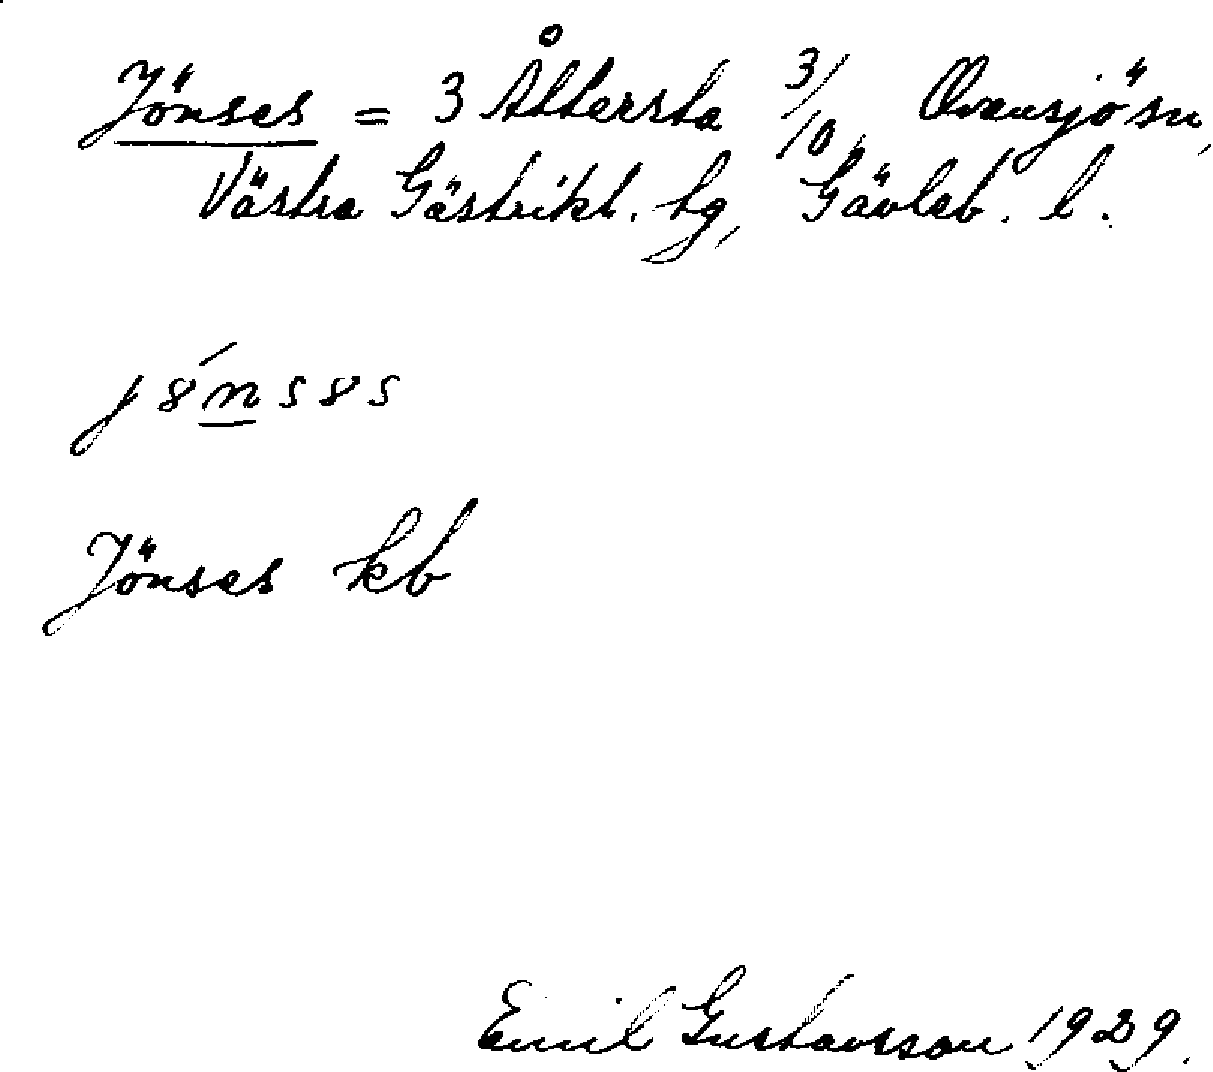 Jönses = 3 Åttersta 3/10, Ovansjö sn,
Västra Gästrikl. tg, Gävleb. l.
j8́ns8s
Jönses kb
Emil Gustavsson 1929.